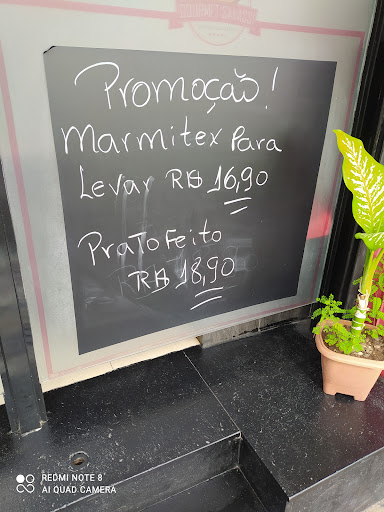 GOURMET SABOSSI
Promoção!
Marmitex Para
Levar R$ 16,90
Prato Feito
R$ 18,90
REDMI NOTE 8
AI QUAD CAMERA